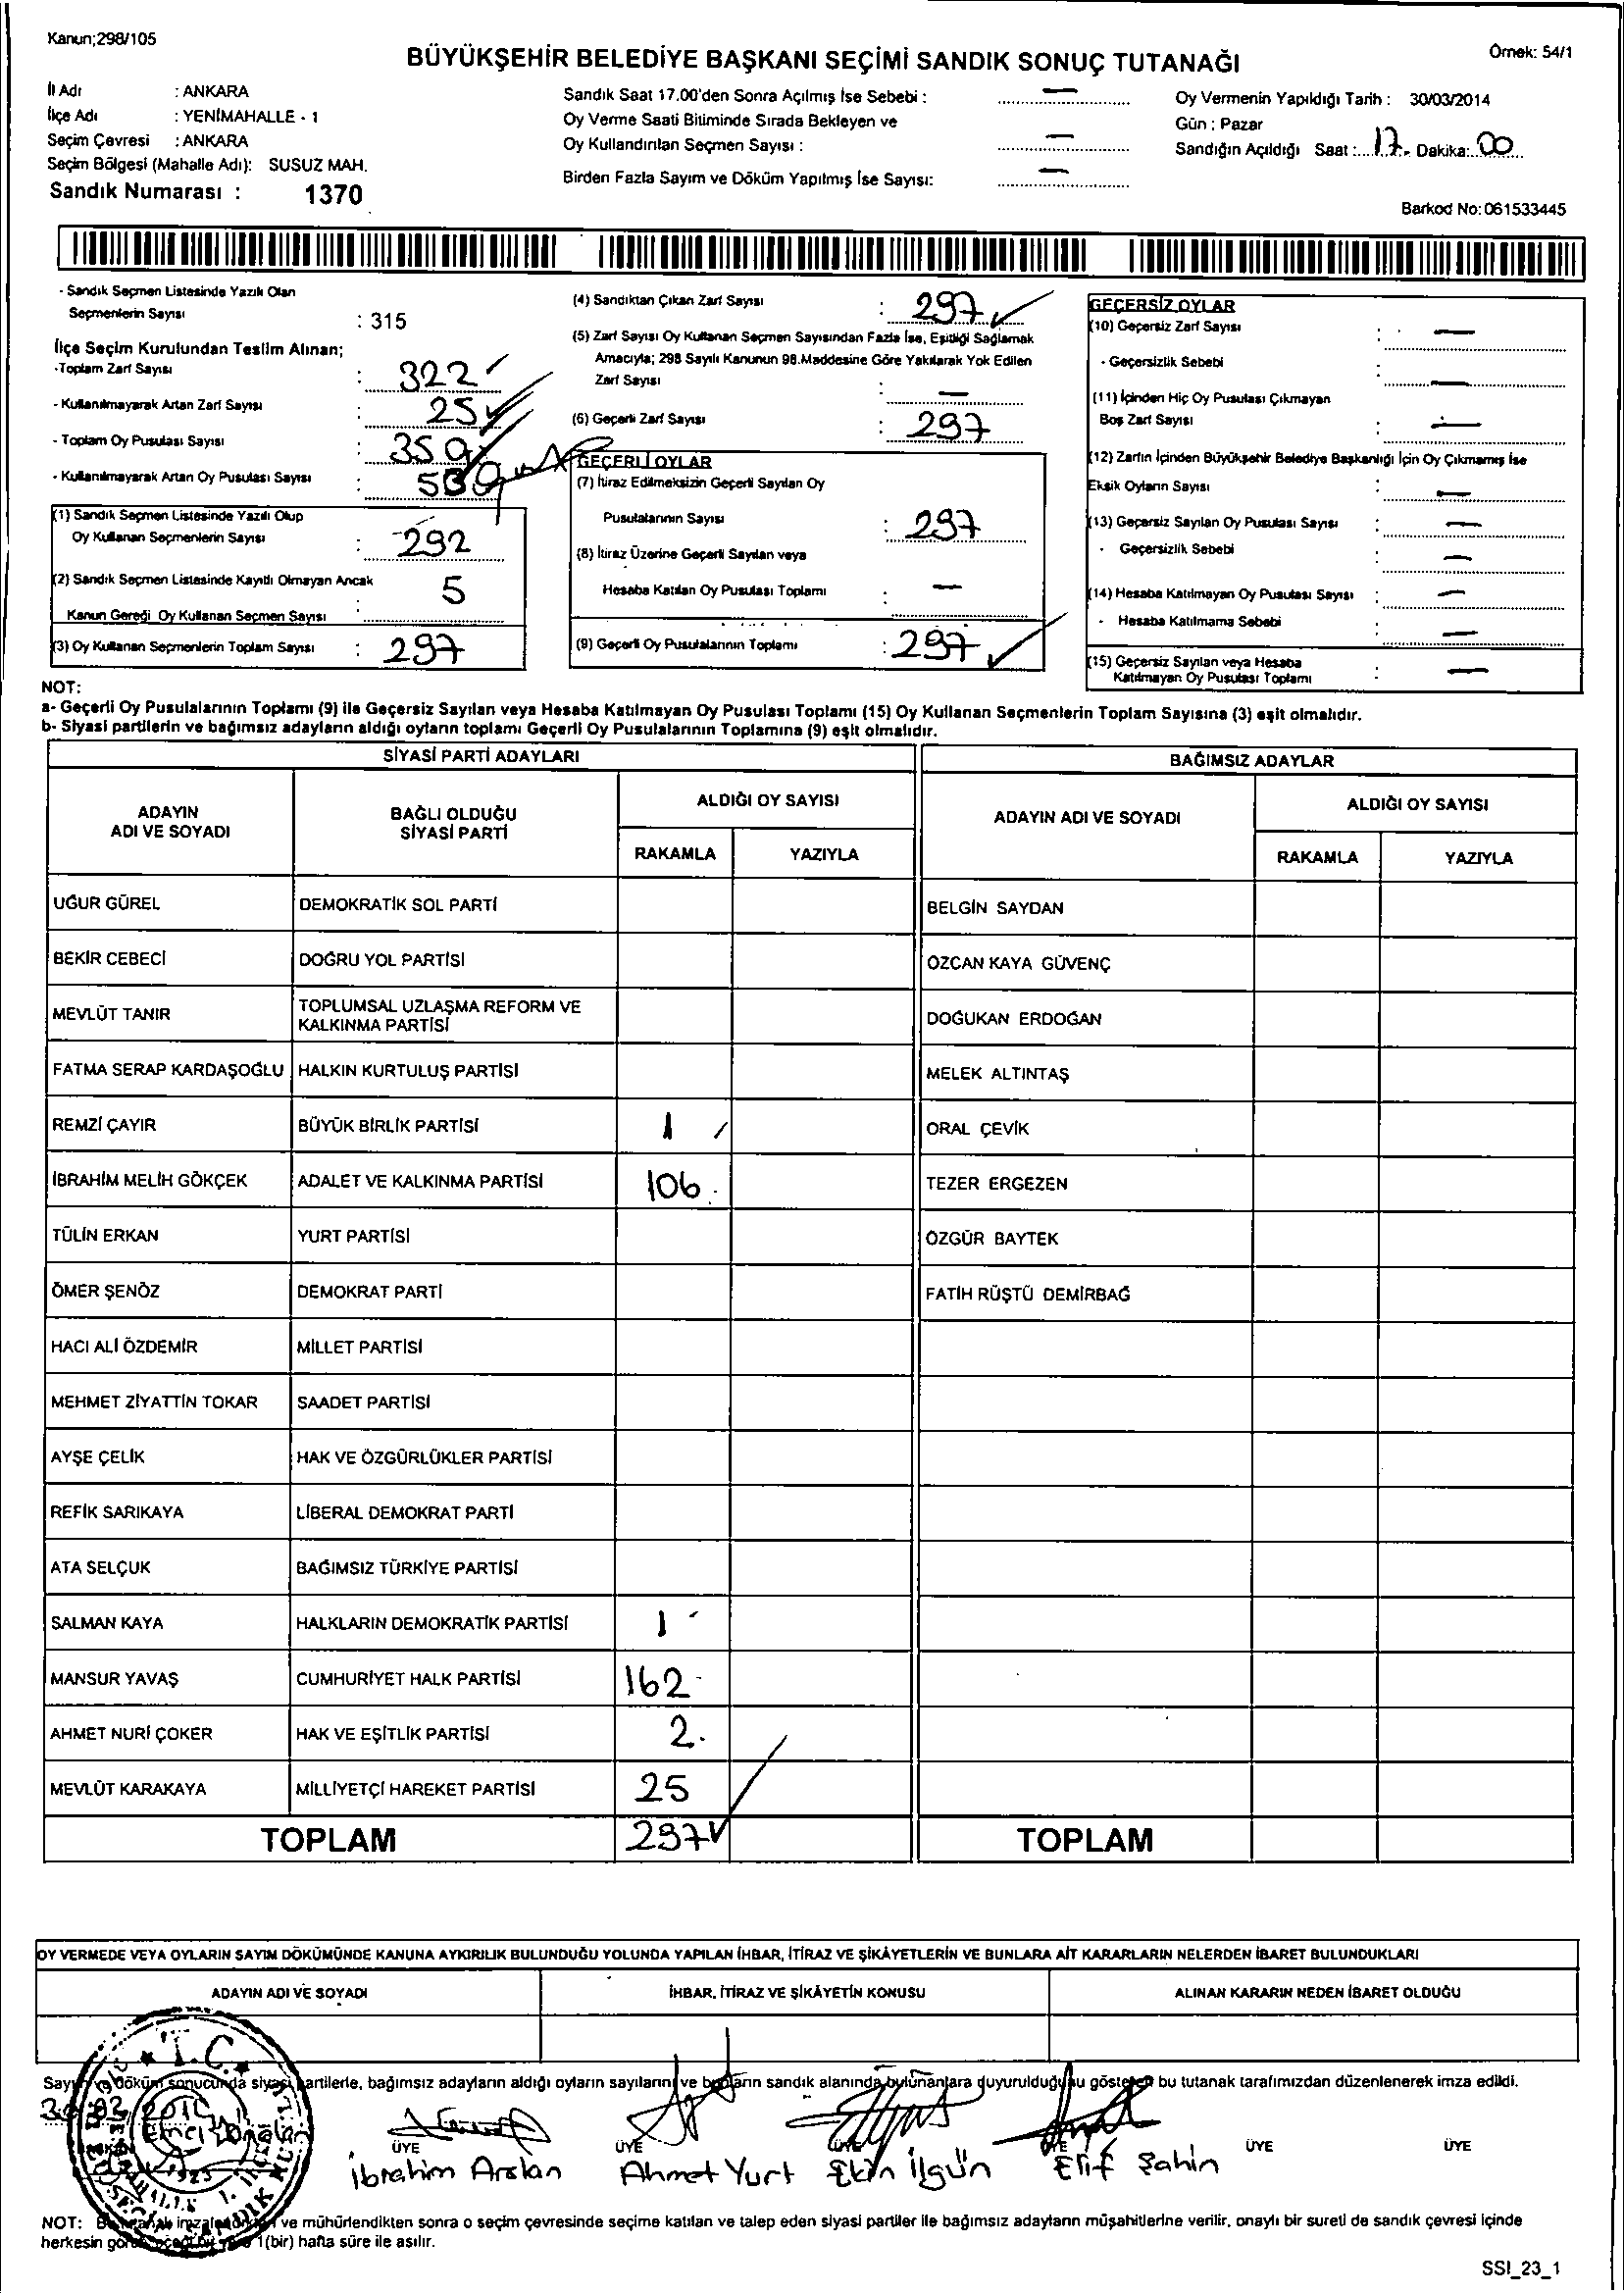 Kanun;298/105
BÜYÜKŞEHİR BELEDİYE BAŞKANI SEÇİMİ SANDIK SONUÇ TUTANAĞI
Örnek: 54/1
İl Adı : ANKARA
İlçe Adı : YENİMAHALLE - 1
Seçim Çevresi : ANKARA
Seçim Bölgesi (Mahalle Adı): SUSUZ MAH.
Sandık Numarası : 1370
Sandık Saat 17.00'den Sonra Açılmış İse Sebebi : —
Oy Verme Saati Bitiminde Sırada Bekleyen ve
Oy Kullandırılan Seçmen Sayısı : —
Birden Fazla Sayım ve Döküm Yapılmış İse Sayısı: —
Oy Vermenin Yapıldığı Tarih : 30/03/2014
Gün : Pazar
Sandığın Açıldığı Saat : 17 Dakika: 00
Barkod No:061533445
- Sandık Seçmen Listesinde Yazılı Olan
Seçmenlerin Sayısı : 315
İlçe Seçim Kurulundan Teslim Alınan;
-Toplam Zarf Sayısı : 322
- Kullanılmayarak Artan Zarf Sayısı : 25
- Toplam Oy Pusulası Sayısı : 350
- Kullanılmayarak Artan Oy Pusulası Sayısı :
(1) Sandık Seçmen Listesinde Yazılı Olup
Oy Kullanan Seçmenlerin Sayısı : 292
(2) Sandık Seçmen Listesinde Kayıtlı Olmayan Ancak
Kanun Gereği Oy Kullanan Seçmen Sayısı : 5
(3) Oy Kullanan Seçmenlerin Toplam Sayısı : 297
(4) Sandıktan Çıkan Zarf Sayısı : 297
(5) Zarf Sayısı Oy Kullanan Seçmen Sayısından Fazla İse, Eşitliği Sağlamak
Amacıyla; 298 Sayılı Kanunun 98.Maddesine Göre Yakılarak Yok Edilen
Zarf Sayısı : —
(6) Geçerli Zarf Sayısı : 297
GEÇERLİ OYLAR
(7) İtiraz Edilmeksizin Geçerli Sayılan Oy
Pusulalarının Sayısı : 297
(8) İtiraz Üzerine Geçerli Sayılan veya
Hesaba Katılan Oy Pusulası Toplamı : —
(9) Geçerli Oy Pusulalarının Toplamı : 297
GEÇERSİZ OYLAR
(10) Geçersiz Zarf Sayısı : —
- Geçersizlik Sebebi : —
(11) İçinden Hiç Oy Pusulası Çıkmayan
Boş Zarf Sayısı : —
(12) Zarfın İçinden Büyükşehir Belediye Başkanlığı İçin Oy Çıkmamış İse
Eksik Oyların Sayısı : —
(13) Geçersiz Sayılan Oy Pusulası Sayısı : —
- Geçersizlik Sebebi : —
(14) Hesaba Katılmayan Oy Pusulası Sayısı : —
- Hesaba Katılmama Sebebi : —
(15) Geçersiz Sayılan veya Hesaba
Katılmayan Oy Pusulası Toplamı : —
NOT:
a- Geçerli Oy Pusulalarının Toplamı (9) ile Geçersiz Sayılan veya Hesaba Katılmayan Oy Pusulası Toplamı (15) Oy Kullanan Seçmenlerin Toplam Sayısına (3) eşit olmalıdır.
b- Siyasi partilerin ve bağımsız adayların aldığı oyların toplamı Geçerli Oy Pusulalarının Toplamına (9) eşit olmalıdır.
SİYASİ PARTİ ADAYLARI
ADAYIN ADI VE SOYADI BAĞLI OLDUĞU SİYASİ PARTİ ALDIĞI OY SAYISI
RAKAMLA YAZIYLA
UĞUR GÜREL DEMOKRATİK SOL PARTİ
BEKİR CEBECİ DOĞRU YOL PARTİSİ
MEVLÜT TANIR TOPLUMSAL UZLAŞMA REFORM VE KALKINMA PARTİSİ
FATMA SERAP KARDAŞOĞLU HALKIN KURTULUŞ PARTİSİ
REMZİ ÇAYIR BÜYÜK BİRLİK PARTİSİ 1
İBRAHİM MELİH GÖKÇEK ADALET VE KALKINMA PARTİSİ 106
TÜLİN ERKAN YURT PARTİSİ
ÖMER ŞENÖZ DEMOKRAT PARTİ
HACI ALİ ÖZDEMİR MİLLET PARTİSİ
MEHMET ZİYATTİN TOKAR SAADET PARTİSİ
AYŞE ÇELİK HAK VE ÖZGÜRLÜKLER PARTİSİ
REFİK SARIKAYA LİBERAL DEMOKRAT PARTİ
ATA SELÇUK BAĞIMSIZ TÜRKİYE PARTİSİ
SALMAN KAYA HALKLARIN DEMOKRATİK PARTİSİ 1
MANSUR YAVAŞ CUMHURİYET HALK PARTİSİ 162
AHMET NURİ ÇOKER HAK VE EŞİTLİK PARTİSİ 2
MEVLÜT KARAKAYA MİLLİYETÇİ HAREKET PARTİSİ 25
TOPLAM 297
BAĞIMSIZ ADAYLAR
ADAYIN ADI VE SOYADI ALDIĞI OY SAYISI
RAKAMLA YAZIYLA
BELGİN SAYDAN
ÖZCAN KAYA GÜVENÇ
DOĞUKAN ERDOĞAN
MELEK ALTINTAŞ
ORAL ÇEVİK
TEZER ERGEZEN
ÖZGÜR BAYTEK
FATİH RÜŞTÜ DEMİRBAĞ
TOPLAM
OY VERMEDE VEYA OYLARIN SAYIM DÖKÜMÜNDE KANUNA AYKIRILIK BULUNDUĞU YOLUNDA YAPILAN İHBAR, İTİRAZ VE ŞİKÂYETLERİN VE BUNLARA AİT KARARLARIN NELERDEN İBARET BULUNDUKLARI
ADAYIN ADI VE SOYADI İHBAR, İTİRAZ VE ŞİKÂYETİN KONUSU ALINAN KARARIN NEDEN İBARET OLDUĞU
T.C.
döküm sonucunda siyasi partilerle, bağımsız adayların aldığı oyların sayılarını ve bunların sandık alanında bulunanlara duyurulduğunu gösteren bu tutanak tarafımızdan düzenlenerek imza edildi.
ÜYE ÜYE ÜYE ÜYE ÜYE ÜYE
İbrahim Arslan Ahmet Yurt Ekin İlgün Elif Şahin
NOT: ve mühürlendikten sonra o seçim çevresinde seçime katılan ve talep eden siyasi partiler ile bağımsız adayların müşahitlerine verilir, onaylı bir sureti de sandık çevresi içinde
herkesin 1(bir) hafta süre ile asılır.
SSI_23_1